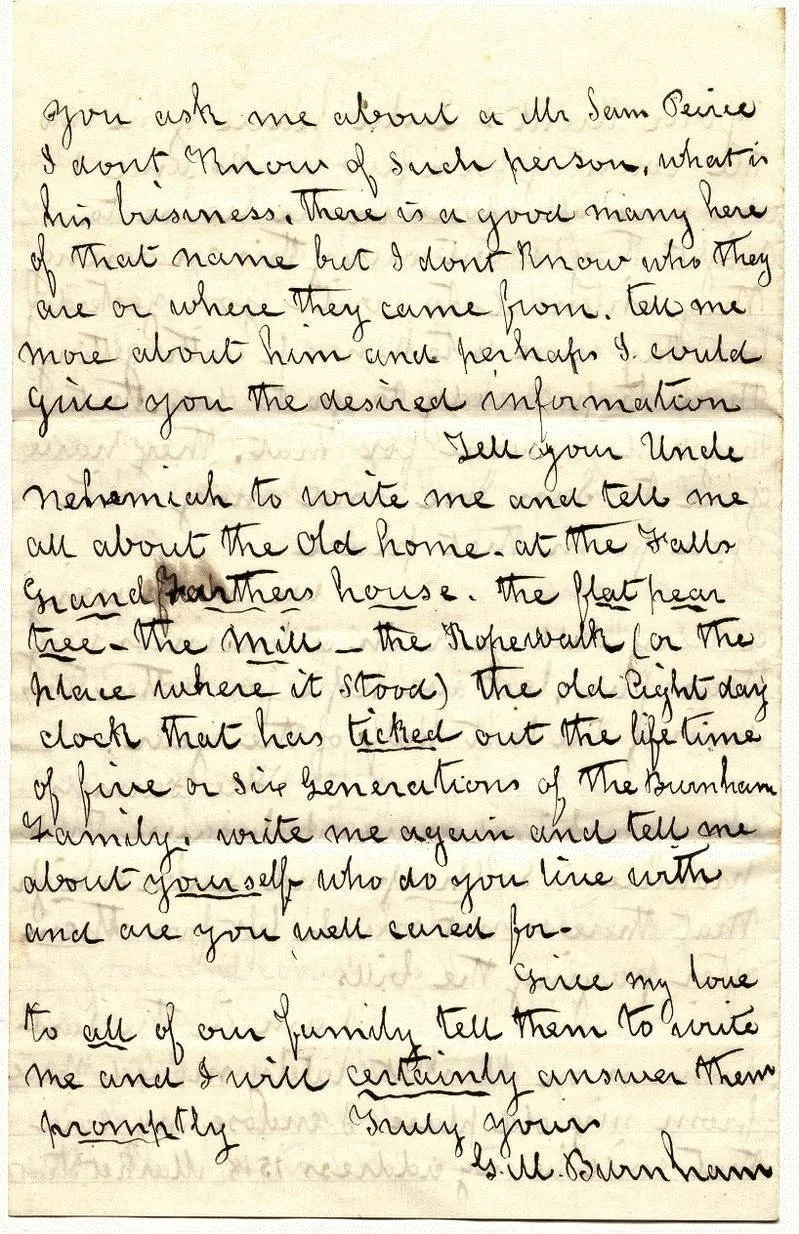 You ask me about a Mr Sam Peirce
I dont Know of such person, what is
his business. There is a good many here
of that name but I dont Know who they
are or where they came from. tell me
more about him and perhaps I could
give you the desired information
Tell your Uncle
Nehemiah to write me and tell me
all about the Old home. at the Falls
Grand Farthers house. the flat pear
tree - the Mill - the Ropewalk (or the
place where it stood) the old Eight day
clock that has ticked out the life time
of five or six Generations of the Burnham
Family. write me again and tell me
about yourself who do you live with
and are you well cared for-
Give my love
to all of our family tell them to write
me and I will certainly answer them
promptly Truly yours
G. M. Burnham